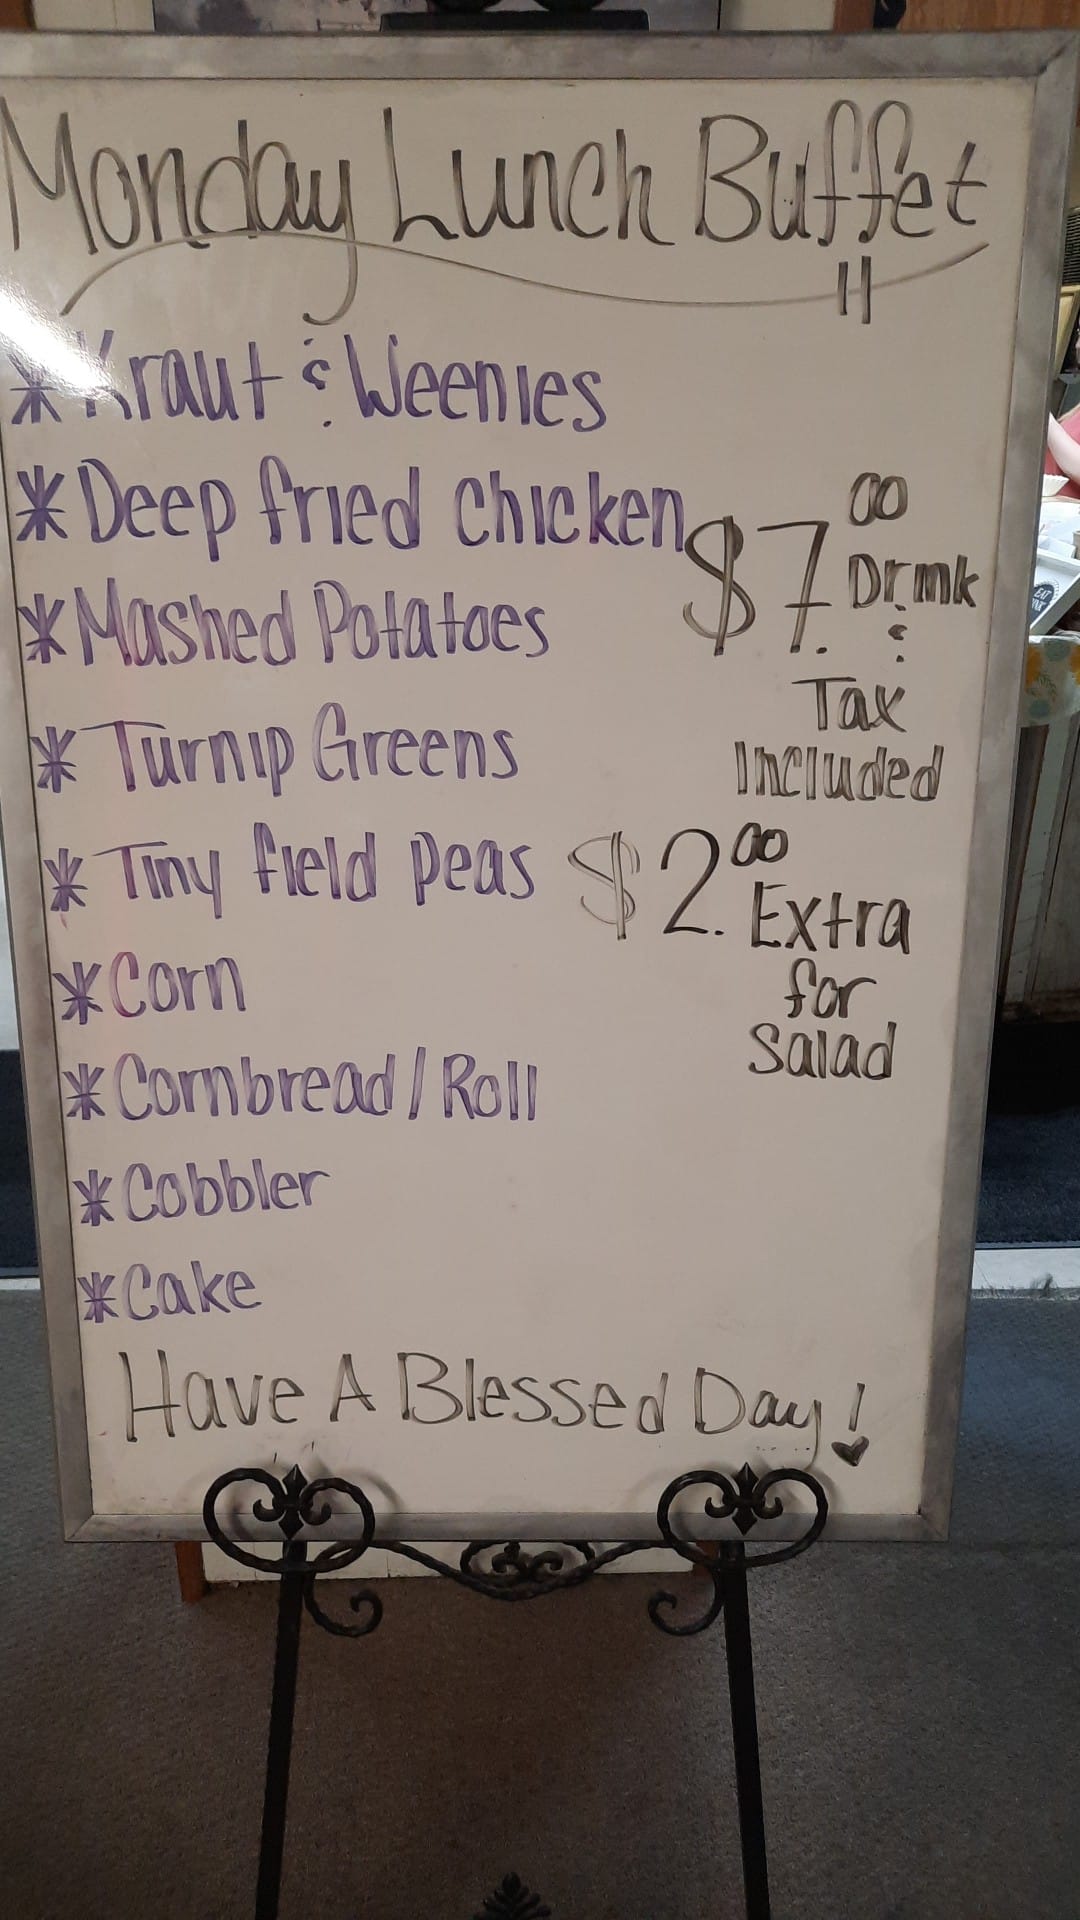 Monday Lunch Buffet
* Kraut & Weenies
* Deep fried chicken
* Mashed Potatoes
* Turnip Greens
* Tiny field peas
* Corn
* Cornbread / Roll
* Cobbler
* Cake
$7.00
Drink
&
Tax
Included
$2.00
Extra
for
Salad
Have A Blessed Day!
EAT